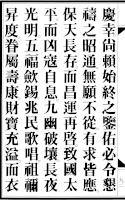 慶幸尚賴始終之鑒佑必令懇
禱之昭通無願不從有求皆應
保天長存而昌運再啓致國太
平而凶寇自息九幽破壤長夜
光明五福斂錫兆民歌唱祖禰
昇度眷屬壽康財寶充溢而衣